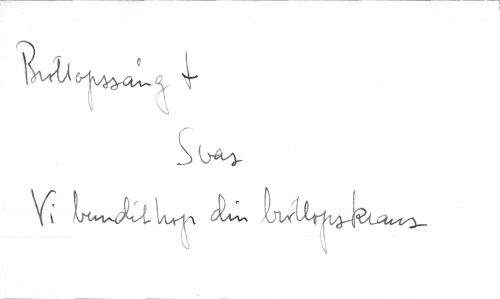 Bröllopssång +
Svas
Vi bundit hop din bröllopskrans